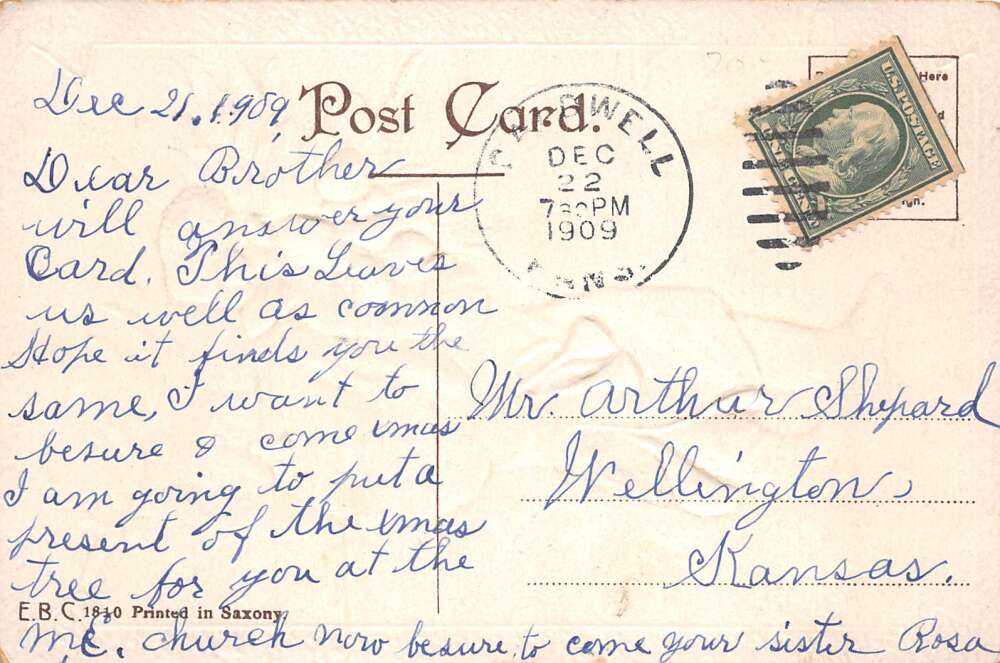 Dec 21. 1909
Post Card.
CALDWELL
DEC
22
730PM
1909
KANS.
Here
U.S. POSTAGE
Dear Brother
will answer your
Card. This Leaves
us well as common
Hope it finds you the
same, I want to
besure & come xmas
I am going to put a
present of the xmas
tree for you at the
M,E. church now besure, to come your sister Rosa
Mr. Arthur Shepard
Wellington,
Kansas.
E.B.C. 1810 Printed in Saxony